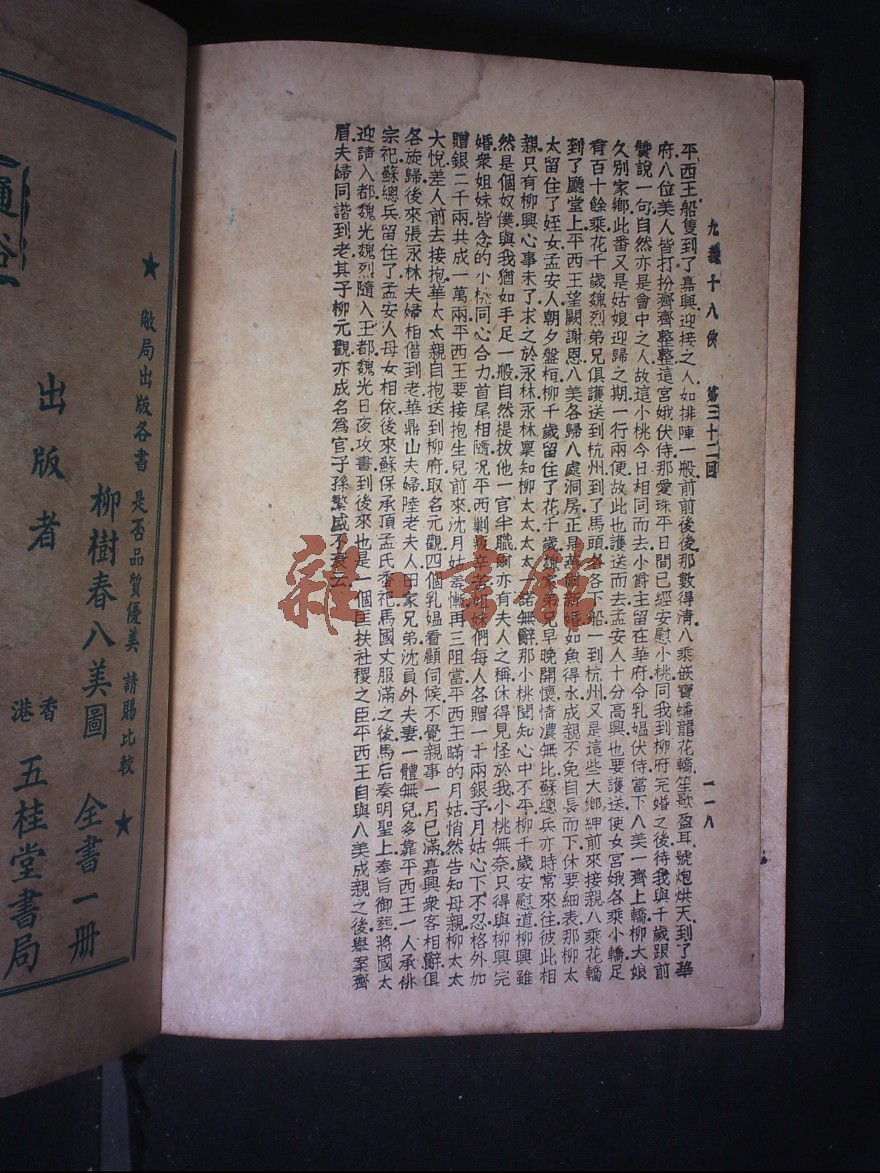 九義十八俠　第三十二回　一一八
平西王船隻到了嘉興迎接之人如排陣一般前前後後那數得清八乘嵌寶蟠龍花轎笙歌盈耳號炮烘天到了華
府八位美人皆打扮齊齊整整這宮娥伏侍那愛珠平日間已經安慰小桃同我到柳府完婚之後待我與千歲跟前
贊說一句自然亦是會中之人故這小桃今日相同而去小爵主留在華府令乳媪伏侍當下八美一齊上轎柳大娘
久別家鄉此番又是姑娘迎歸之期一行兩便故此也護送而去孟安人十分高興也要護送使女宮娥各乘小轎足
有百十餘乘花千歲魏烈弟兄俱護送到杭州到了馬頭各各下船一到杭州又是這些大鄉紳前來接親八乘花轎
到了廳堂上平西王望闕謝恩八美各歸八處洞房正是燕爾新婚如魚得水成親不免自長而下休要細表那柳太
太留住了姪女孟安人朝夕盤桓柳千歲留住了花千歲魏家弟兄早晚開懷情濃無比蘇總兵亦時常來往彼此相
親只有柳興心事未了求之於永林永林稟知柳太太太太一諾無辭那小桃聞知心中不平柳千歲安慰道柳興雖
然是個奴僕與我猶如手足一般自然提拔他一官半職爾亦有夫人之稱休得見怪於我小桃無奈只得與柳興完
婚衆姐妹皆念的小桃同心合力首尾相隨況平西剿叛辛苦姐妹們每人各贈一千兩銀子月姑心下不忍格外加
贈銀二千兩共成一萬兩平西王要接抱生兒前來沈月姑羞慚再三阻當平西王瞞的月姑悄然告知母親柳太太
大悅差人前去接抱華太太親自抱送到柳府取名元觀四個乳媪看顧伺候不覺親事一月已滿嘉興衆客相辭俱
各旋歸後來張永林夫婦相偕到老華鼎山夫婦陸老夫人田家兄弟沈員外夫妻一體無兒多靠平西王一人承祧
宗祀蘇總兵留住了孟安人母女相依後來蘇保承頂孟氏香祀馬國丈服滿之後馬后奏明聖上奉旨御葬將國太
迎請入都魏光魏烈隨入王都魏光日夜攻書到後來也是一個匡扶社稷之臣平西王自與八美成親之後舉案齊
眉夫婦同諧到老其子柳元觀亦成名爲官子孫繁盛不衰云
雜·書館
★敝局出版各書 是否品質優美 請賜比較★
柳樹春八美圖　全書一册
出版者　香港　五桂堂書局
通俗